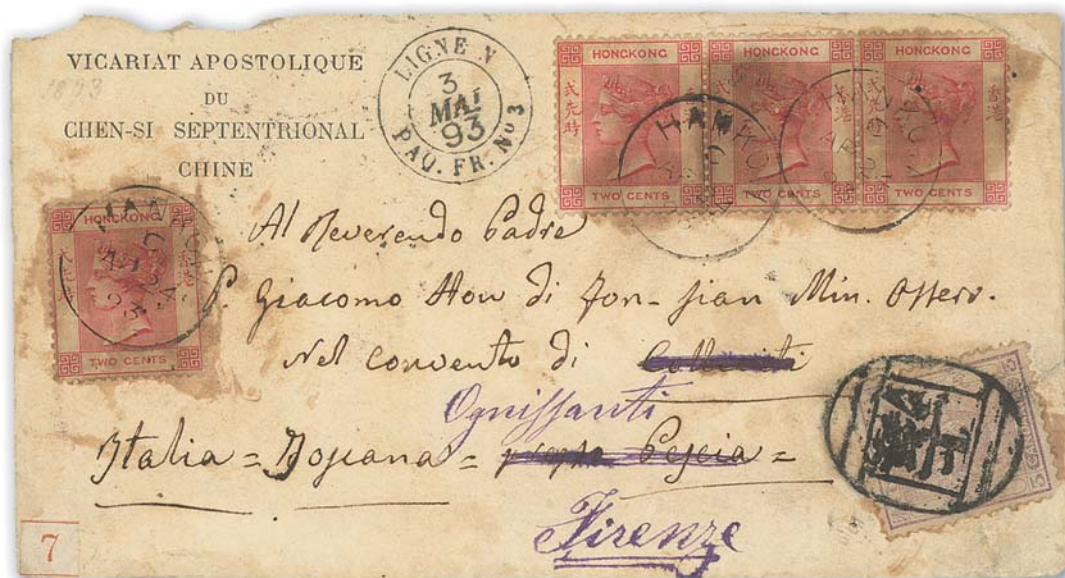 VICARIAT APOSTOLIQUE
1893
DU
CHEN-SI SEPTENTRIONAL
CHINE
LIGNE N
3
MAI
93
PAQ. FR. No 3
HONGKONG
TWO CENTS
HONGKONG
TWO CENTS
HONGKONG
TWO CENTS
HANKOW
HONGKONG
TWO CENTS
Al Reverendo Padre
P. Giacomo How di Fon-sian Min. Osserv.
Nel convento di
Ognissanti
Italia = Toscana = presso Pescia =
Firenze
7